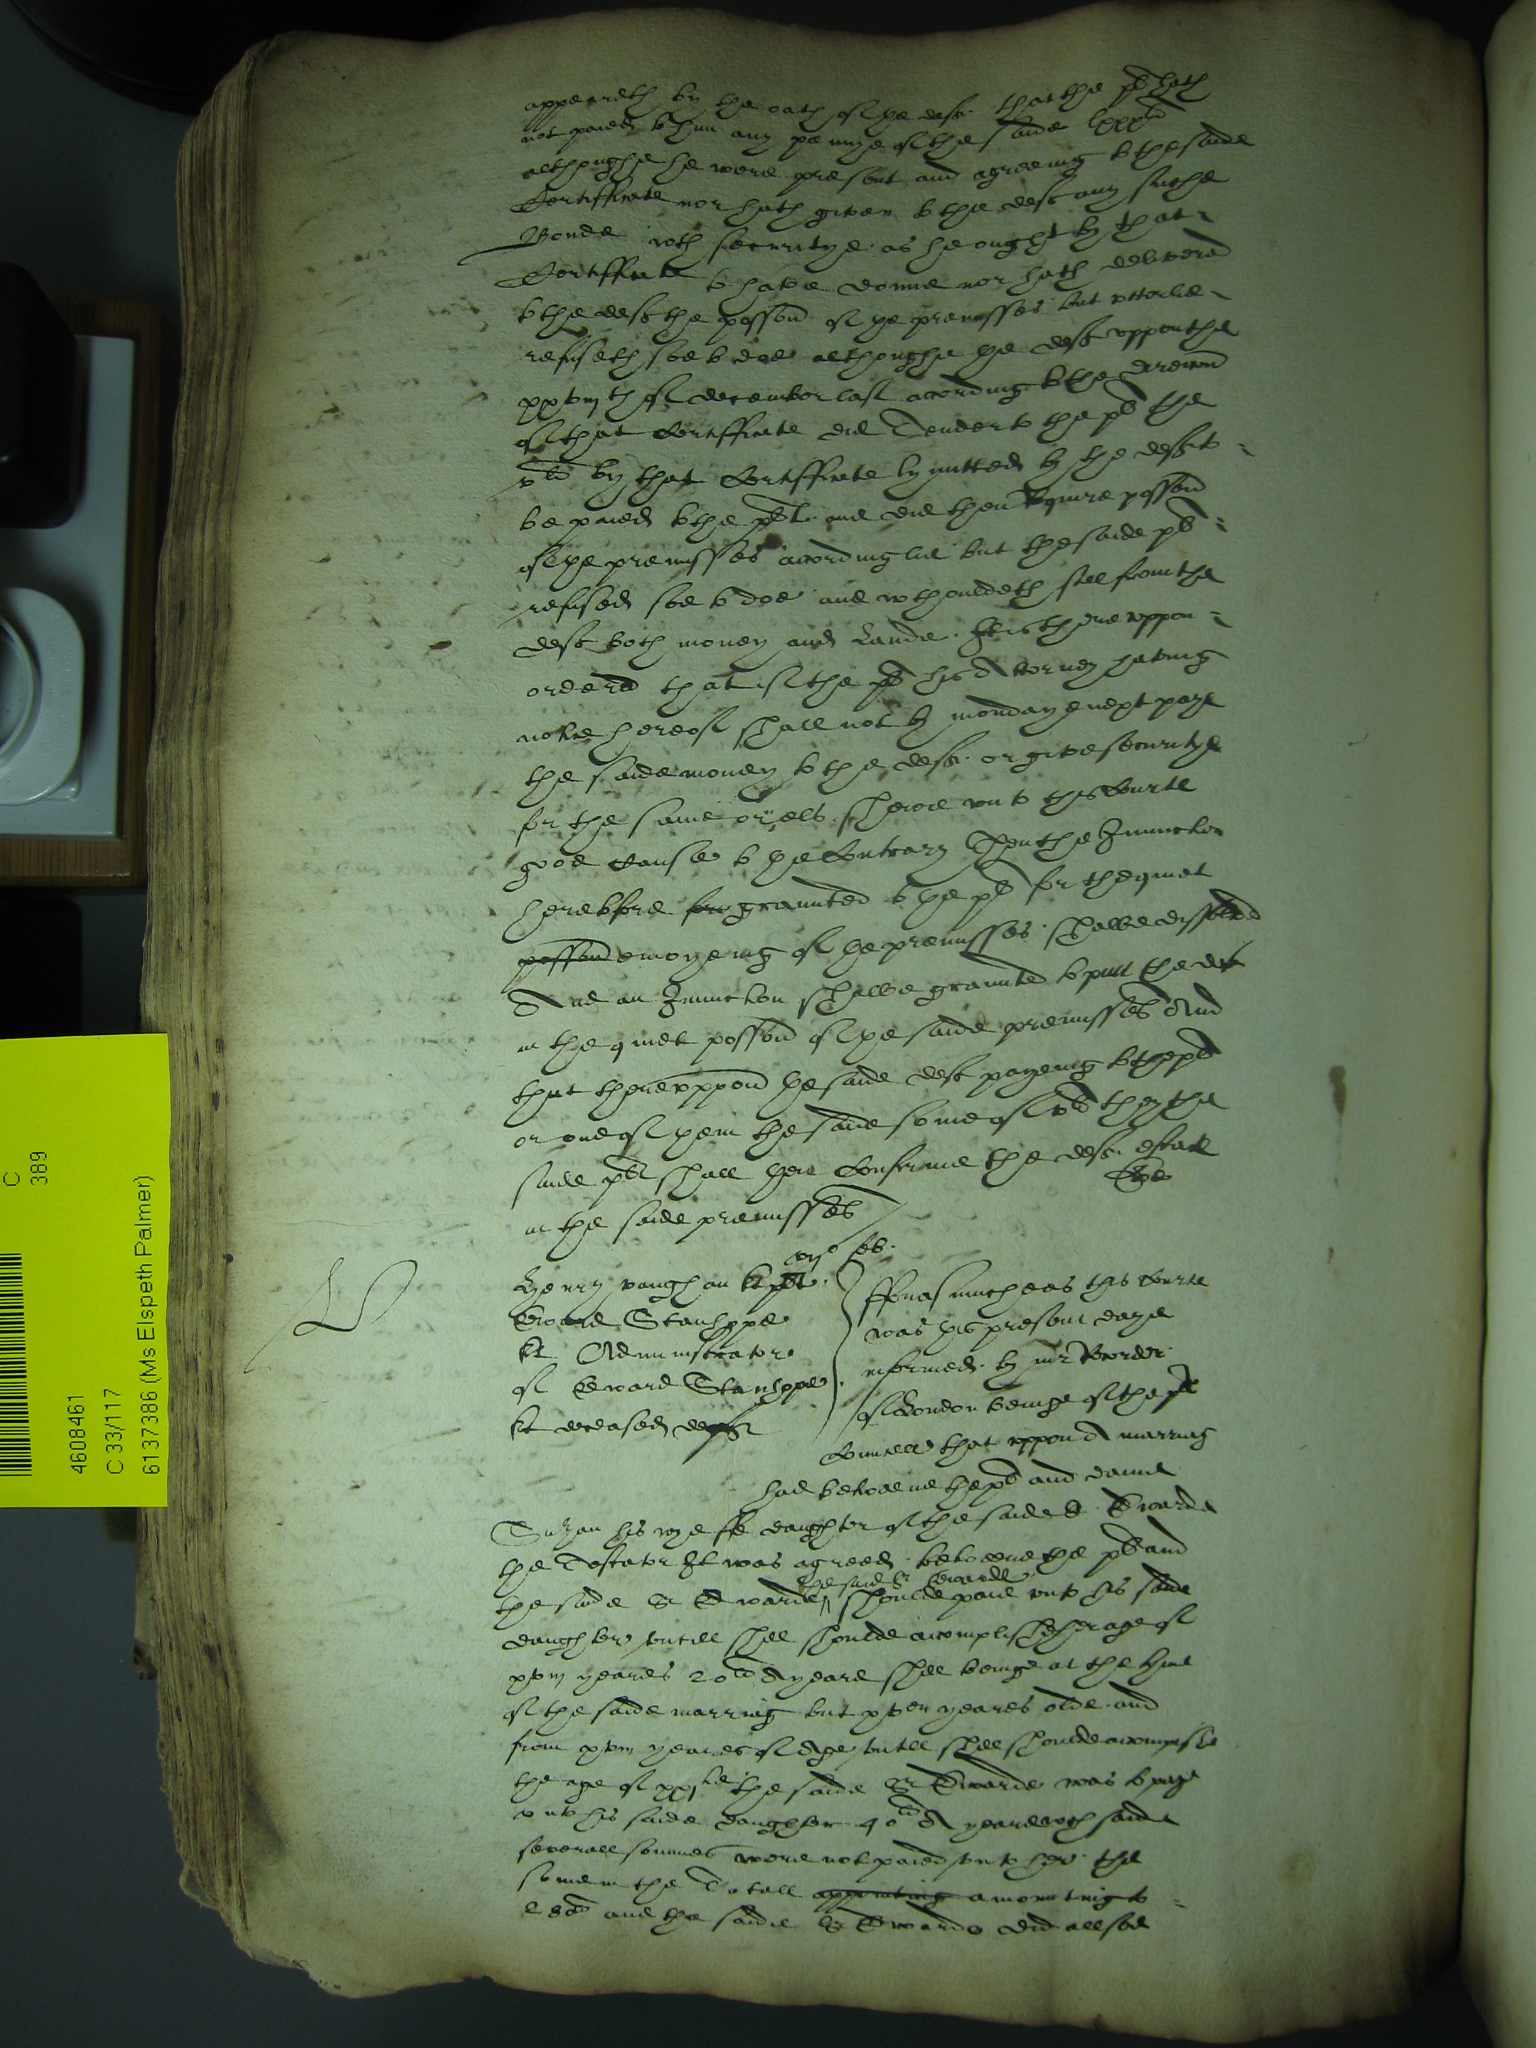 appeareth by the oath of the deft. that the pl hath
not paied to him any pennye of the saide lxxx li
althoughe he were present and agreeing to the saide
Certifficate nor hath given to the deft any suche
Bonde wth securitye as he ought by that
Certifficate to have donne nor hath delivered
to the deft the possion of the premisses but utterlie
refuseth soe to doe althoughe the deft uppon the
xxviijth of december last according to the
of that Certifficate did Tender to the pl the
by that Certifficate lymitted by the deft to
be paied to the pl and did then Require possion
of the premisses accordinglie but the saide pl
refused soe to doe and wthouldeth still from the
deft both money and Lande. It is thereuppon
ordered that if the pl his Attorney having
notice hereof shall not by monday next paye
the saide money to the deft. or give securitye
for the same or els shewe unto this Courte
good cause to the Contrary Then the Iniunction
heretofore graunted to the pl for the quiet
possion enioyeing of the premisses shalbe dissolved
And an Iniunction shalbe graunted to putt the deft
in the quiet possion of the saide premisses And
that thereuppon the saide deft payeing to the pl
or one of them the saide some of they the
saide pl shall then Confirme the deft estate
in the saide premisses
Henry vaughan kt pl
Edward Stanhppe
kt Administrator
of Edward Stanhppe
kt deceased deft
Forasmuche as this Courte
was this present daye
informed by mr Recorder
of London beinge of the pl
Councell that uppon A marriag
had betweene the pl and dame
Suzan his wyeffe daughter of the saide Sr Edward
the Testator It was agreed betweene the pl and
the saide Sr Edwarde the said Sr Edwarde shoulde paie unto his saide
daughter untill shee shoulde accomplish her age of
xviij yeares 20 li A yeare shee beinge at the tyme
of the saide marriag but yeares olde and
from xviij yeares of Age untill shee shoulde accomplishe
the age of xxj the saide Sr Edwarde was to paye
unto his saide daughter 40 li A yeare wch saide
severall sommes were not paied unto her the
some in the Totall amounting to
and the saide Sr Edwarde did allsoe
4608461
C 33/117
6137386 (Ms Elspeth Palmer)
C
389